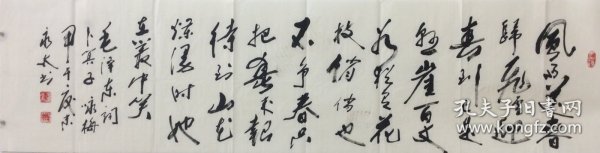 風雨送春
歸飛雪迎
春到已是
懸崖百丈
冰猶有花
枝俏俏也
不争春只
把春來報
待到山花
爛漫時她
在叢中笑
毛澤東詞
卜算子 詠梅
甲午
孔夫子旧书网